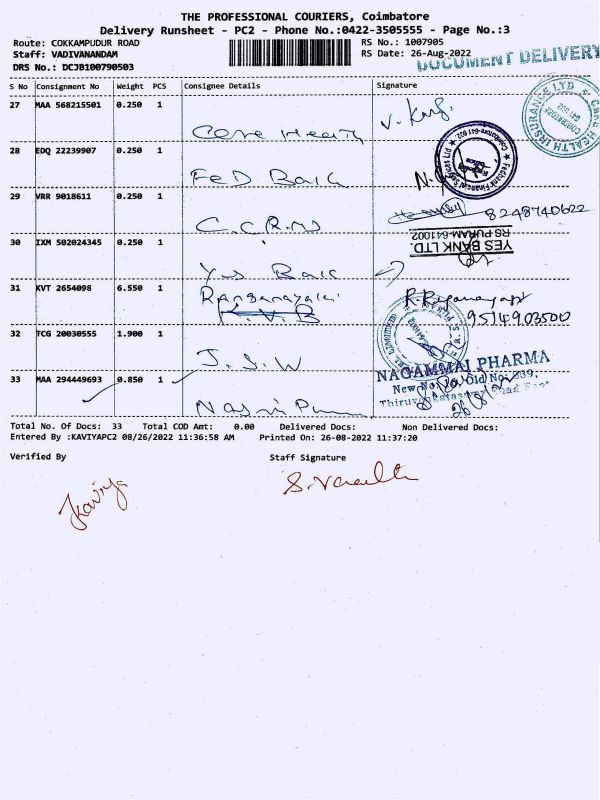 THE PROFESSIONAL COURIERS, Coimbatore
Delivery Runsheet - PC2 - Phone No.:0422-3505555 - Page No.:3
Route: COKKAMPUDUR ROAD
RS No.: 1007905
Staff: VADIVANANDAM
RS Date: 26-Aug-2022
DRS No.: DCJB100790503
DOCUMENT DELIVERY
S No Consignment No Weight PCS Consignee Details Signature
27 MAA 568215501 0.250 1
Care Health
CARE HEALTH INSURANCE LTD
28 EDQ 22239907 0.250 1
FeD Bank
29 VRR 9018611 0.250 1
8248740622
C.C.R.M
RS PURAM-641002
YES BANK LTD.
30 IXM 502024345 0.250 1
Yes Bank
31 KVT 2654098 6.550 1
Ranganayaki
9514903500
32 TCG 20030555 1.900 1
J.S.W
NAGAMMAI PHARMA
33 MAA 294449693 0.850 1
New No: Old No: 339,
26/8/22
Total No. Of Docs: 33 Total COD Amt: 0.00 Delivered Docs: Non Delivered Docs:
Entered By :KAVIYAPC2 08/26/2022 11:36:58 AM Printed On: 26-08-2022 11:37:20
Verified By Staff Signature
Kaviya